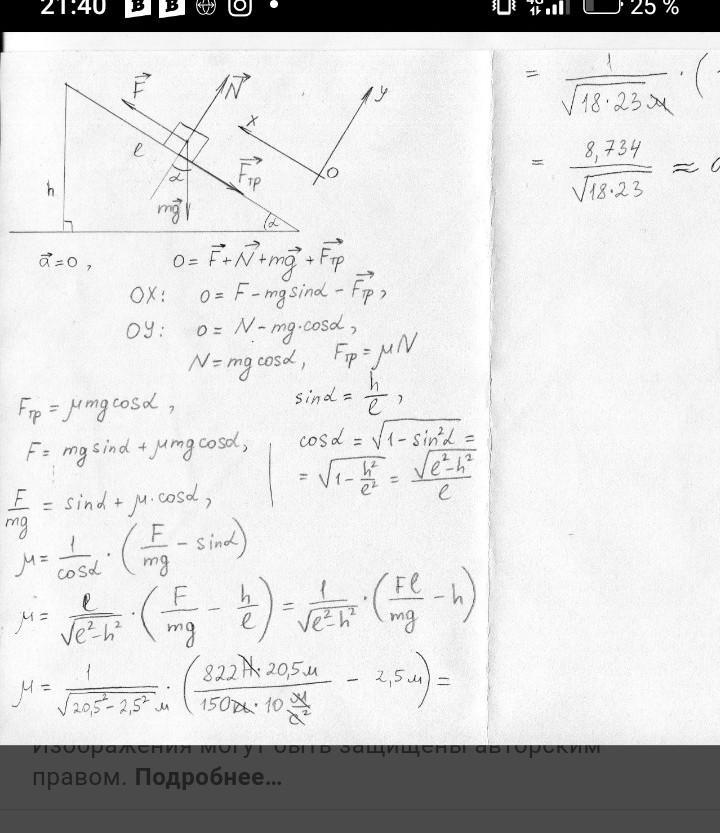 21:40 25 %
F⃗ N⃗ y
x
l F⃗тр O
α
h mg⃗ α
a⃗=0, 0= F⃗+N⃗+mg⃗+F⃗тр
OX: 0= F-mgsinα-F⃗тр,
OY: 0= N-mg·cosα,
N=mgcosα, Fтр=μN
Fтр=μmgcosα,
F= mgsinα+μmgcosα,
F/mg = sinα+μ·cosα,
sinα = h/l,
cosα = √(1-sin²α) =
= √(1-h²/l²) = √(l²-h²)/l
μ= 1/cosα · (F/mg - sinα)
μ= l/√(l²-h²) · (F/mg - h/l) = 1/√(l²-h²) · (Fl/mg - h)
μ= 1/√(20,5²-2,5²) м · (822Н·20,5м/150кг·10 м/с² - 2,5м) =
= 1/√(18·23) м · (
= 8,734/√(18·23) ≈
Изображения могут быть защищены авторским
правом. Подробнее...